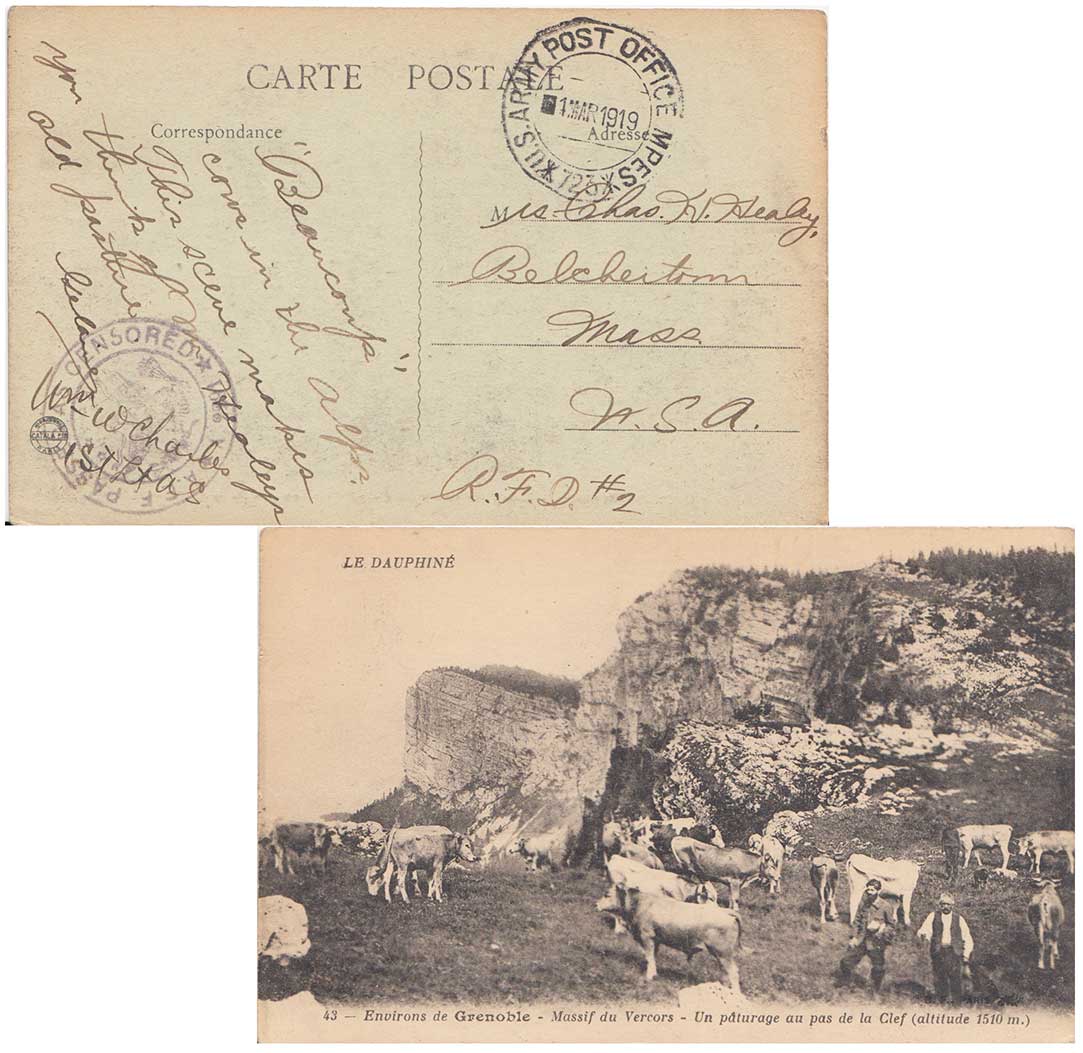 CARTE POSTALE
Correspondance
Adresse
U.S. ARMY POST OFFICE M.P.E.S.
1 MAR 1919
723
"Beaucoup"
cows in the alps.
This scene makes
think of Mr Healeys
old pasture
Wm W Charles
1st Lt A S
A.E.F. PASSED AS CENSORED
CATALA
PARIS
Mrs. Chas. H. Healey,
Belchertown
Mass
U.S.A.
R.F.D. #2
LE DAUPHINÉ
43 — Environs de Grenoble - Massif du Vercors - Un pâturage au pas de la Clef (altitude 1510 m.)